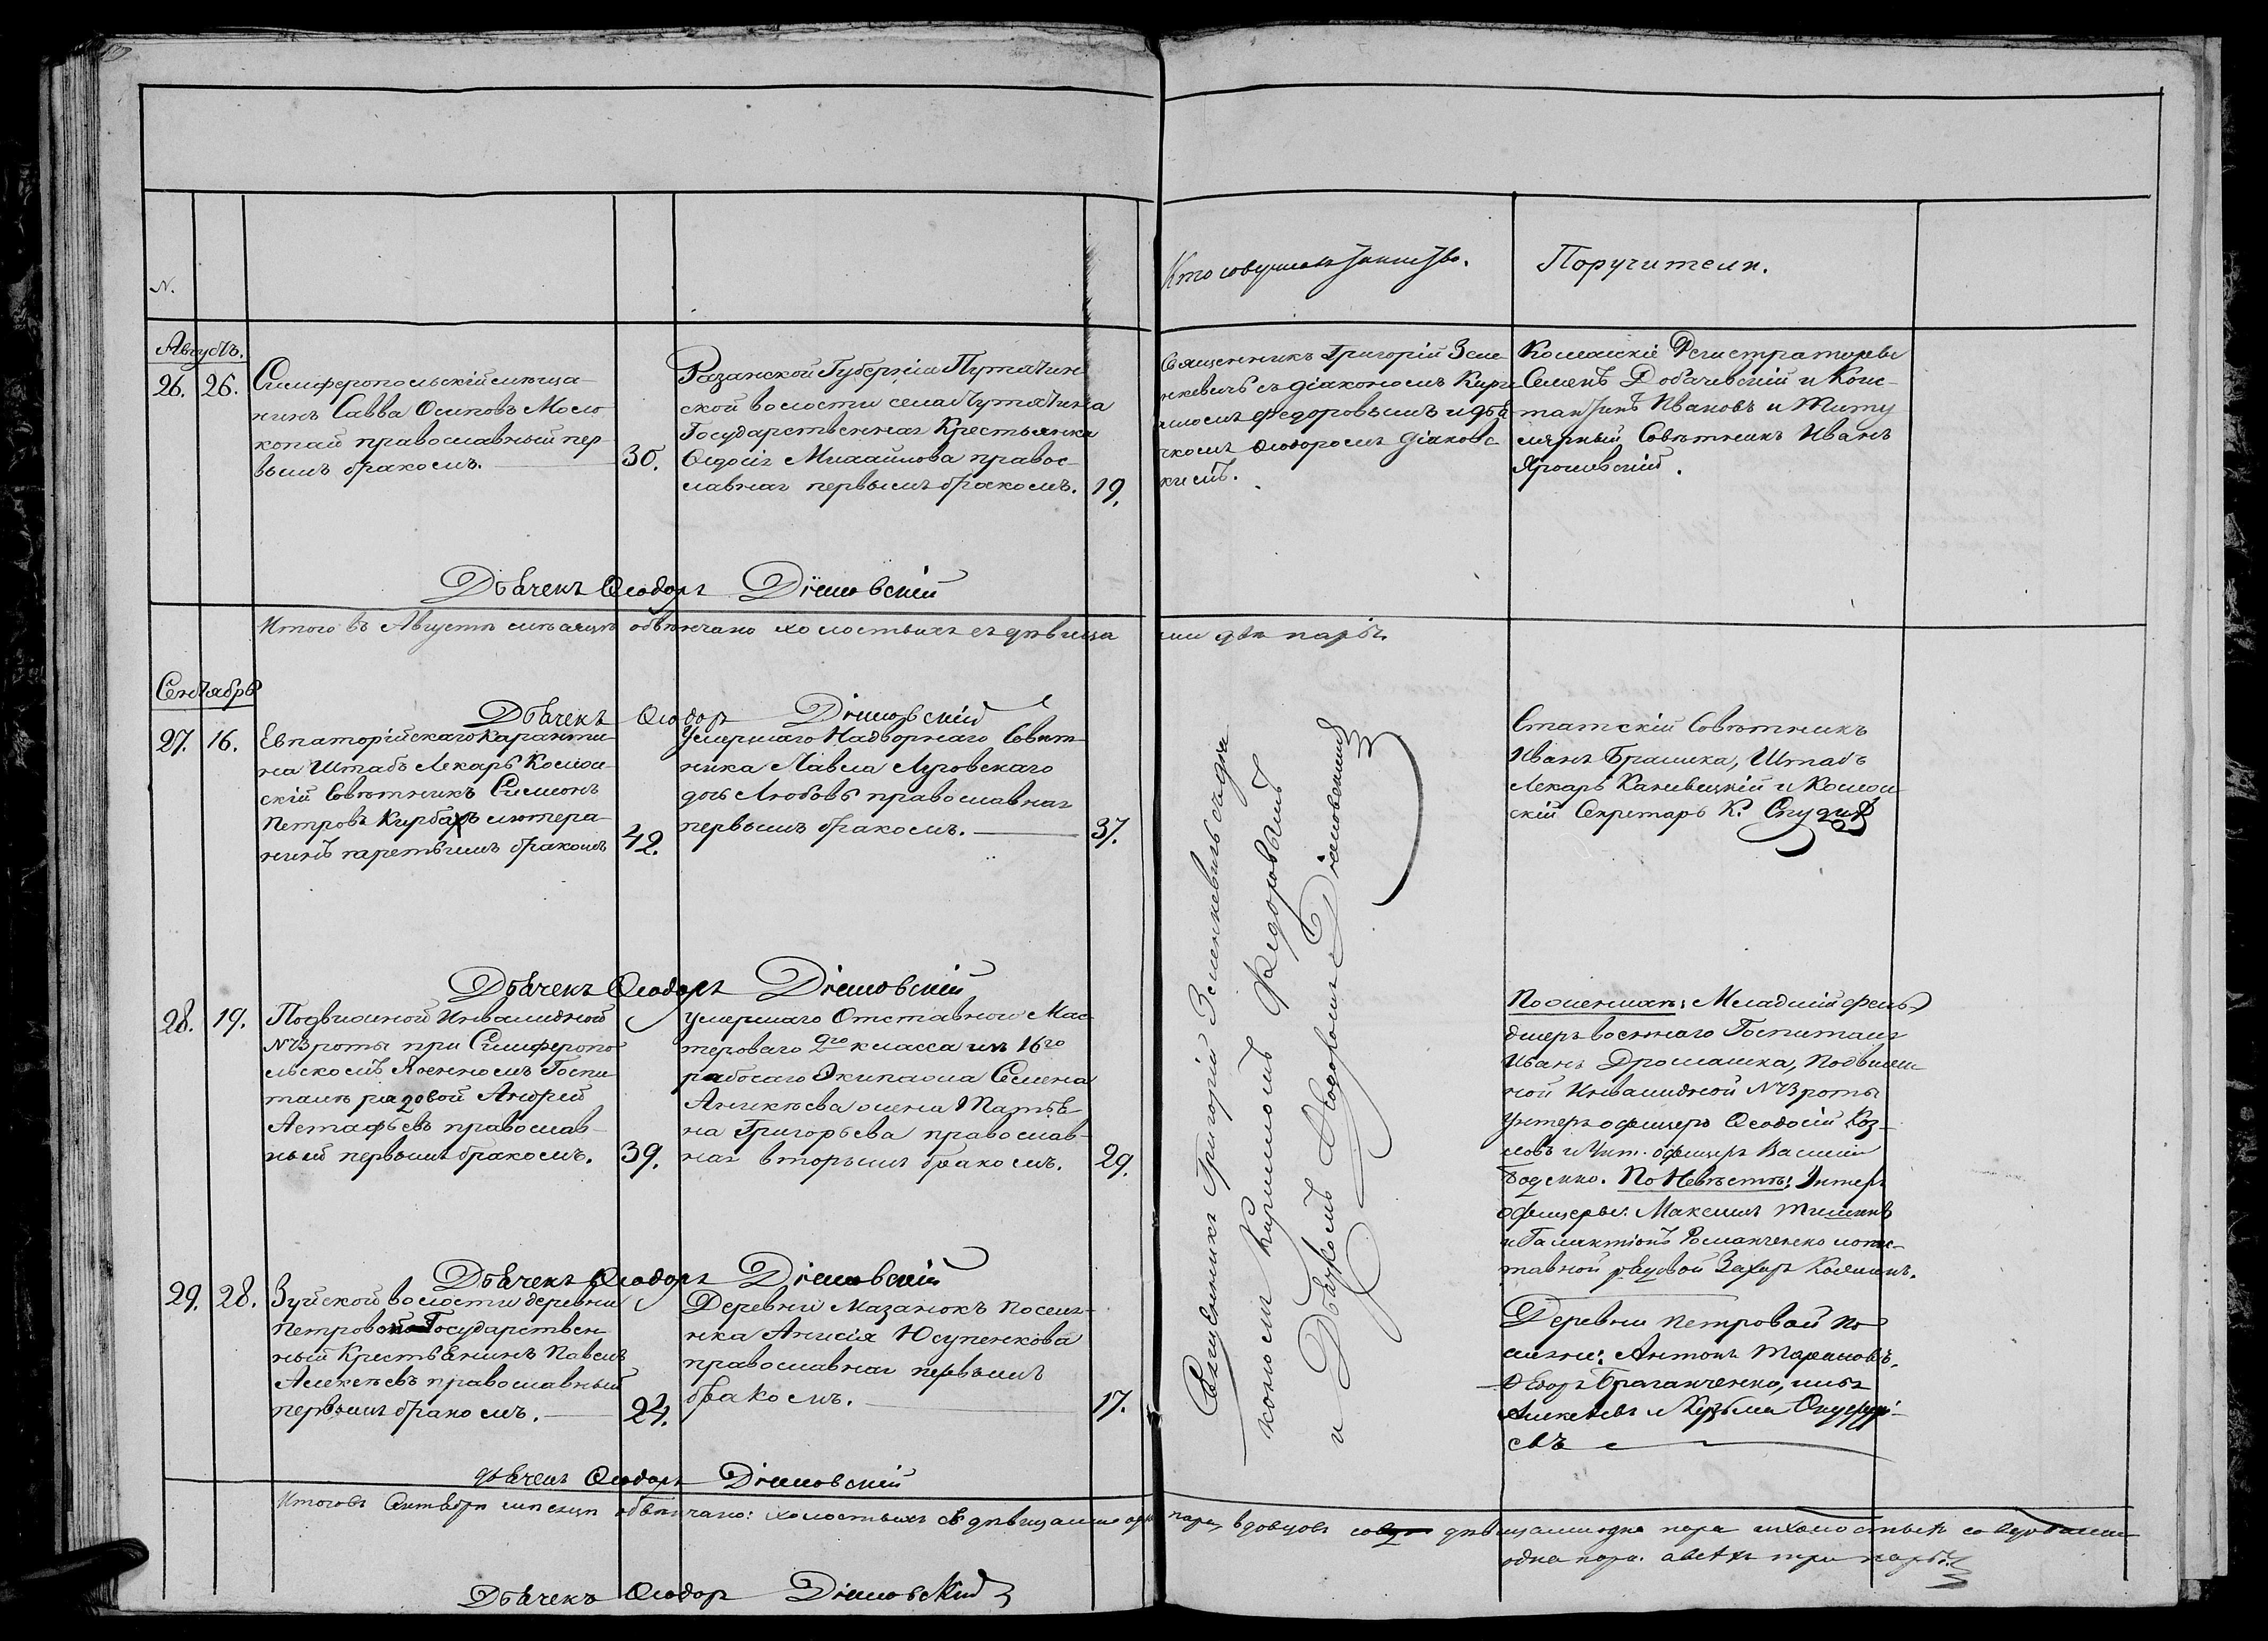 N.
Кто совершалъ таинство.
Поручители.
Августъ.
26. 26.
Симферопольскій мѣща-
нинъ Савва Осиповъ Моло
копай православный пер-
вымъ бракомъ.
30.
Разанской Губерніи Путятин
ской волости села Путятина
Государственная Крестьянка
Ѳедосія Михайлова правос-
лавная первымъ бракомъ.
19.
Священникъ Григорій Зеле
нкевичъ съ діакономъ Кири
лломъ Федоровымъ и дья
чкомъ Ѳеодоромъ
Колежскіе Регистраторы
Семенъ Добачевскій и Конс-
тантинъ Ивановъ и Титу
лярный Совѣтникъ Иванъ
Ярошевскій.
Дьячекъ Ѳеодоръ Дишовскій
Итого въ Августѣ мѣсяцѣ обвѣнчано холостыхъ съ дѣвица
ми двѣ пары.
Сентябрь
Дьячекъ Ѳеодор Дишовскій
27. 16.
Евпаторійскаго Каранти-
на Штабъ Лекарь Коллеж-
скій Совѣтникъ Симеонъ
Петровъ лютера-
нинъ третьимъ бракомъ
42.
Умершаго Надворнаго Совѣт-
ника Павла Луговскаго
дочь Любовь православная
первымъ бракомъ.
37.
Статскій Совѣтникъ
Иванъ Грашка, Штабъ
Лекарь Каневецкій и Коллеж-
скій Секретарь К.
Дьячекъ Ѳеодоръ Дишовскій
28. 19.
Подвижной Инвалидной
№ 3 роты при Симферопо
льскомъ Военномъ Госпи
талѣ рядовой Андрей
Астафьевъ православ-
ный первымъ бракомъ.
39.
умершаго Отставнои Мас
тероваго 2го класса изъ 16го
рабочаго Экипажа Семена
Аникѣева жена Матрё
на Григорьева православ-
ная вторымъ бракомъ.
29.
По женихѣ: Младшій фель
дшеръ военнаго Госпиталя
Иванъ Дромашка, Подвиж
ной Инвалидной № 3 роты
Унтеръ офицеръ Ѳеодосій Коз-
ловъ и Унт. офицеръ Василій
Боденко. По Невѣстѣ: Унтеръ
офицеры: Максимъ
и Галактіонъ Романченко и отс-
тавной рядовой Захаръ
Священникъ Григорій Зеленкевичъ съ діа
кономъ Кирилломъ Федоровымъ
и Дьячкомъ Ѳеодоромъ Дишовскимъ
Дьячекъ Ѳеодоръ Дишовскій
29. 28.
Зуйской волости деревни
Петровой Государствен
ный Крестьянинъ Павелъ
Алексѣевъ православный
первымъ бракомъ.
24.
Деревни Мазанокъ Поселя-
нка Анисія Юсупенкова
православная первымъ
бракомъ.
17.
Деревни Петровой По
селяне: Антонъ Тарановъ,
Ѳедоръ Браганченко,
Алексѣевъ и Кузьма
Дьячекъ Ѳеодоръ Дишовскій
Итого въ Сентябрѣ мѣсяцѣ обвѣнчано: холостыхъ съ дѣвицами одна пара, вдовцовъ со дѣвицами одна пара и холостыхъ со вдовами
одна пара. а всѣхъ три пары.
Дьячекъ Ѳеодор Дишовскій